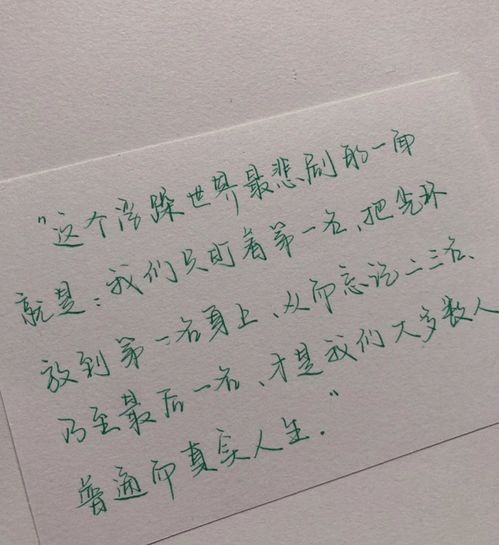 "这个浮躁世界最悲剧的一面
就是：我们只盯着第一名、把光环
放到第一名身上、从而忘记二三名、
乃至最后一名、才是我们大多数人
普通而真实人生."